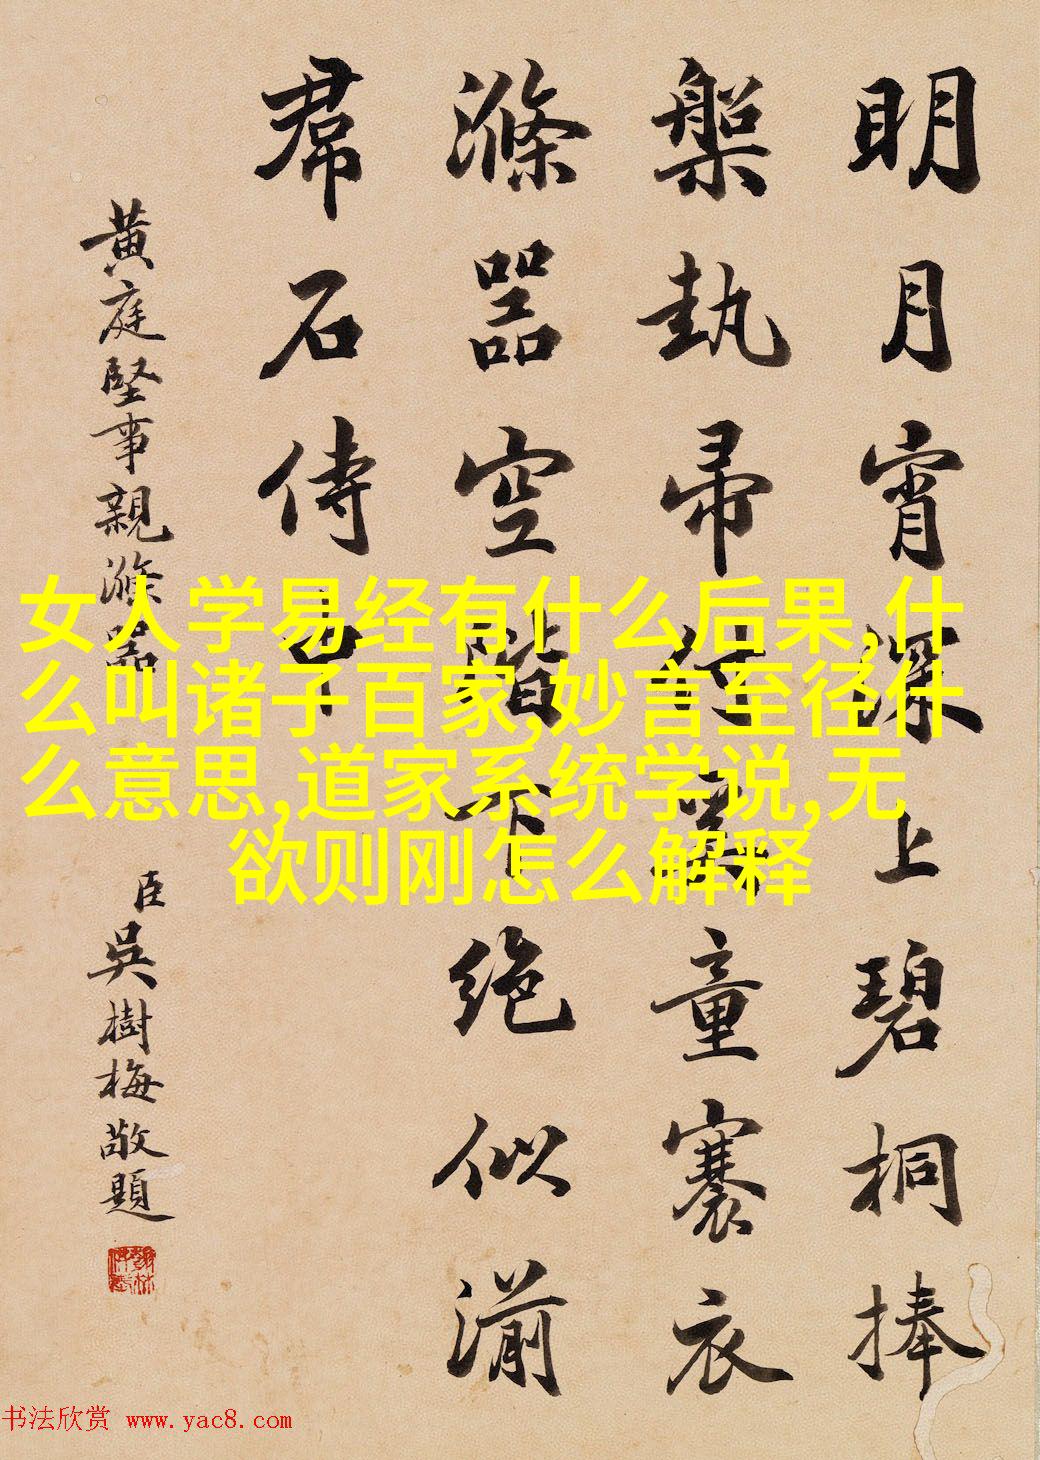 明月宵深上碧桐捧
槃執帚童褰衣
滌器空階下絶似湔
帬石侍中
黄庭堅事親滌器
臣吳樹梅敬題
女人学易经有什么后果,什
么叫诸子百家,妙言至径什
么意思,道家系统学说,无
欲则刚怎么解释
书法欣赏 www.yac8.com